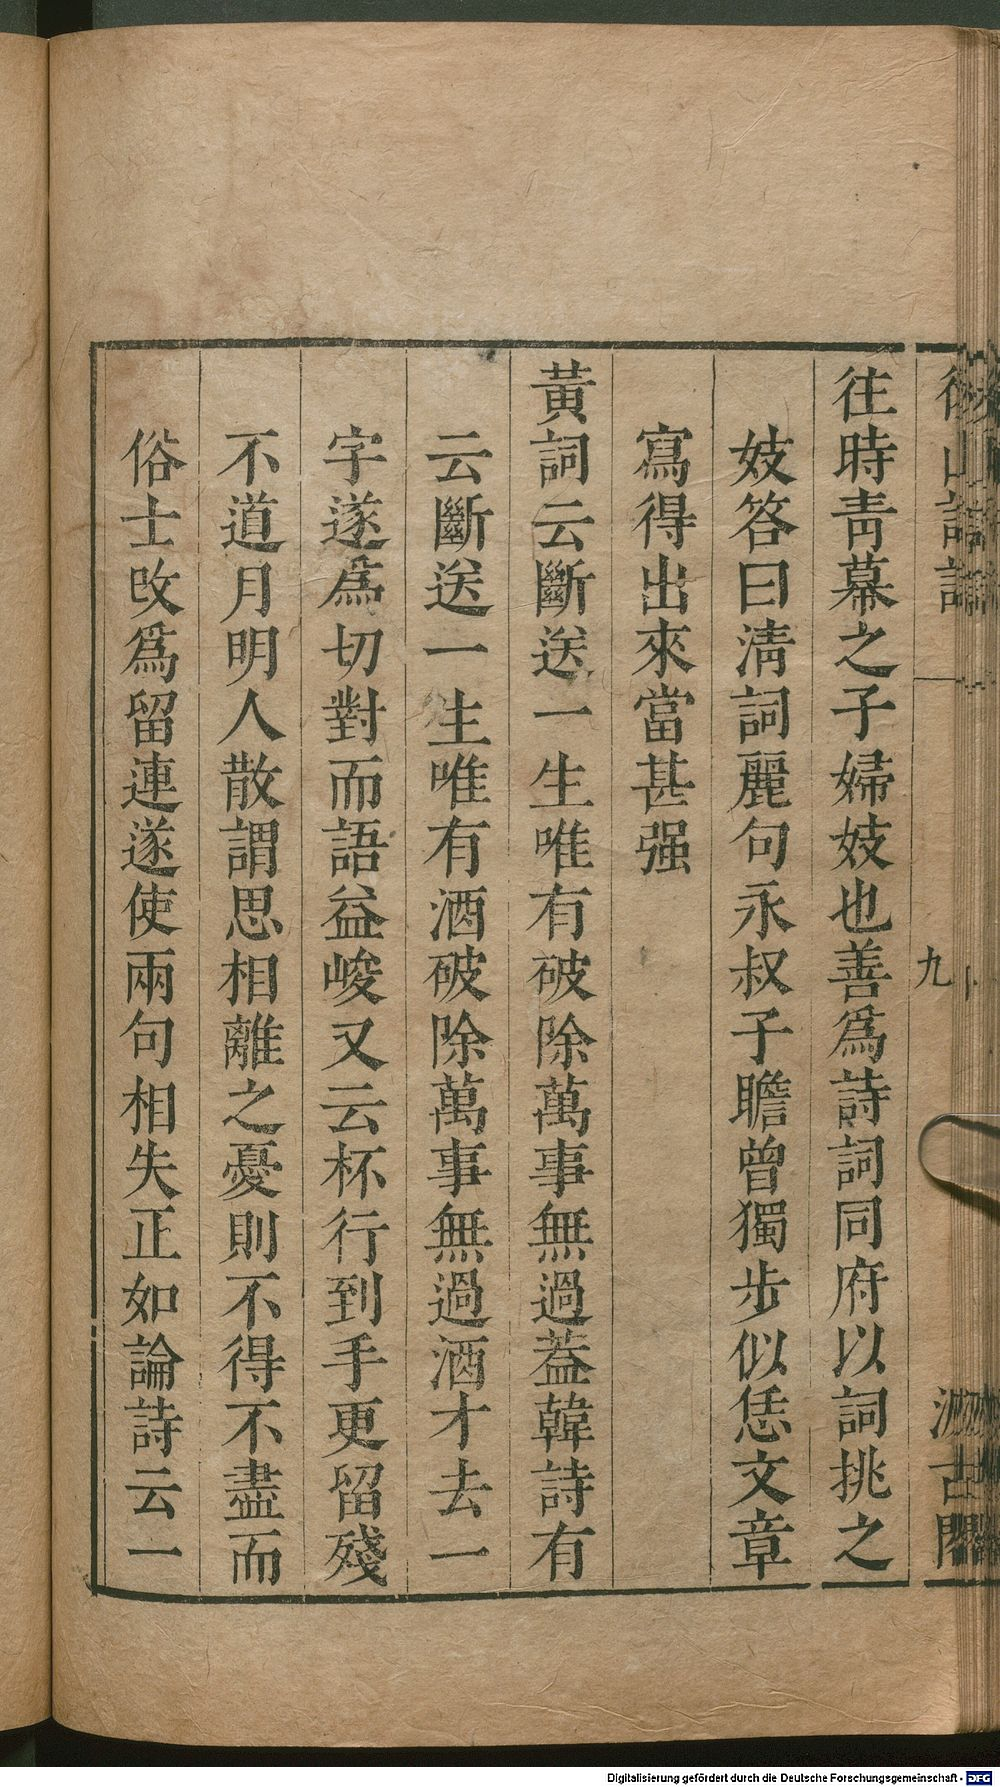 後山詩話
九
汲古閣
往時青幕之子婦妓也善爲詩詞同府以詞挑之
妓答曰清詞麗句永叔子瞻曾獨步似恁文章
寫得出來當甚强
黃詞云斷送一生唯有破除萬事無過蓋韓詩有
云斷送一生唯有酒破除萬事無過酒才去一
字遂爲切對而語益峻又云杯行到手更留殘
不道月明人散謂思相離之憂則不得不盡而
俗士改爲留連遂使兩句相失正如論詩云一
Digitalisierung gefördert durch die Deutsche Forschungsgemeinschaft - DFG